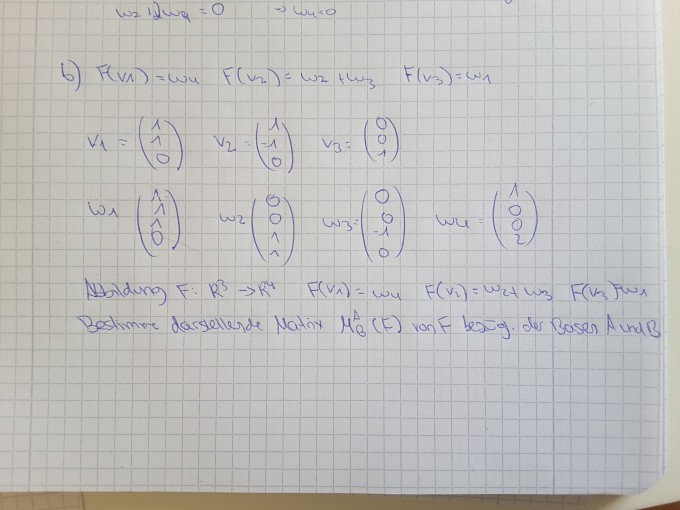 w2 + 2w4 = 0 → w4=0
b) F(v1) = w4 F(v2) = w2 + w3 F(v3) = w1
v1 = (1 1 0) v2 = (1 -1 0) v3 = (0 0 1)
w1 (1 1 1 0) w2 (0 0 1 1) w3 = (0 0 -1 0) w4 = (1 0 0 2)
Abbildung F: R³ → R⁴ F(v1) = w4 F(v2) = w2 + w3 F(v3) = w1
Bestimme darstellende Matrix M^A_B (F) von F bezüg. der Basen A und B